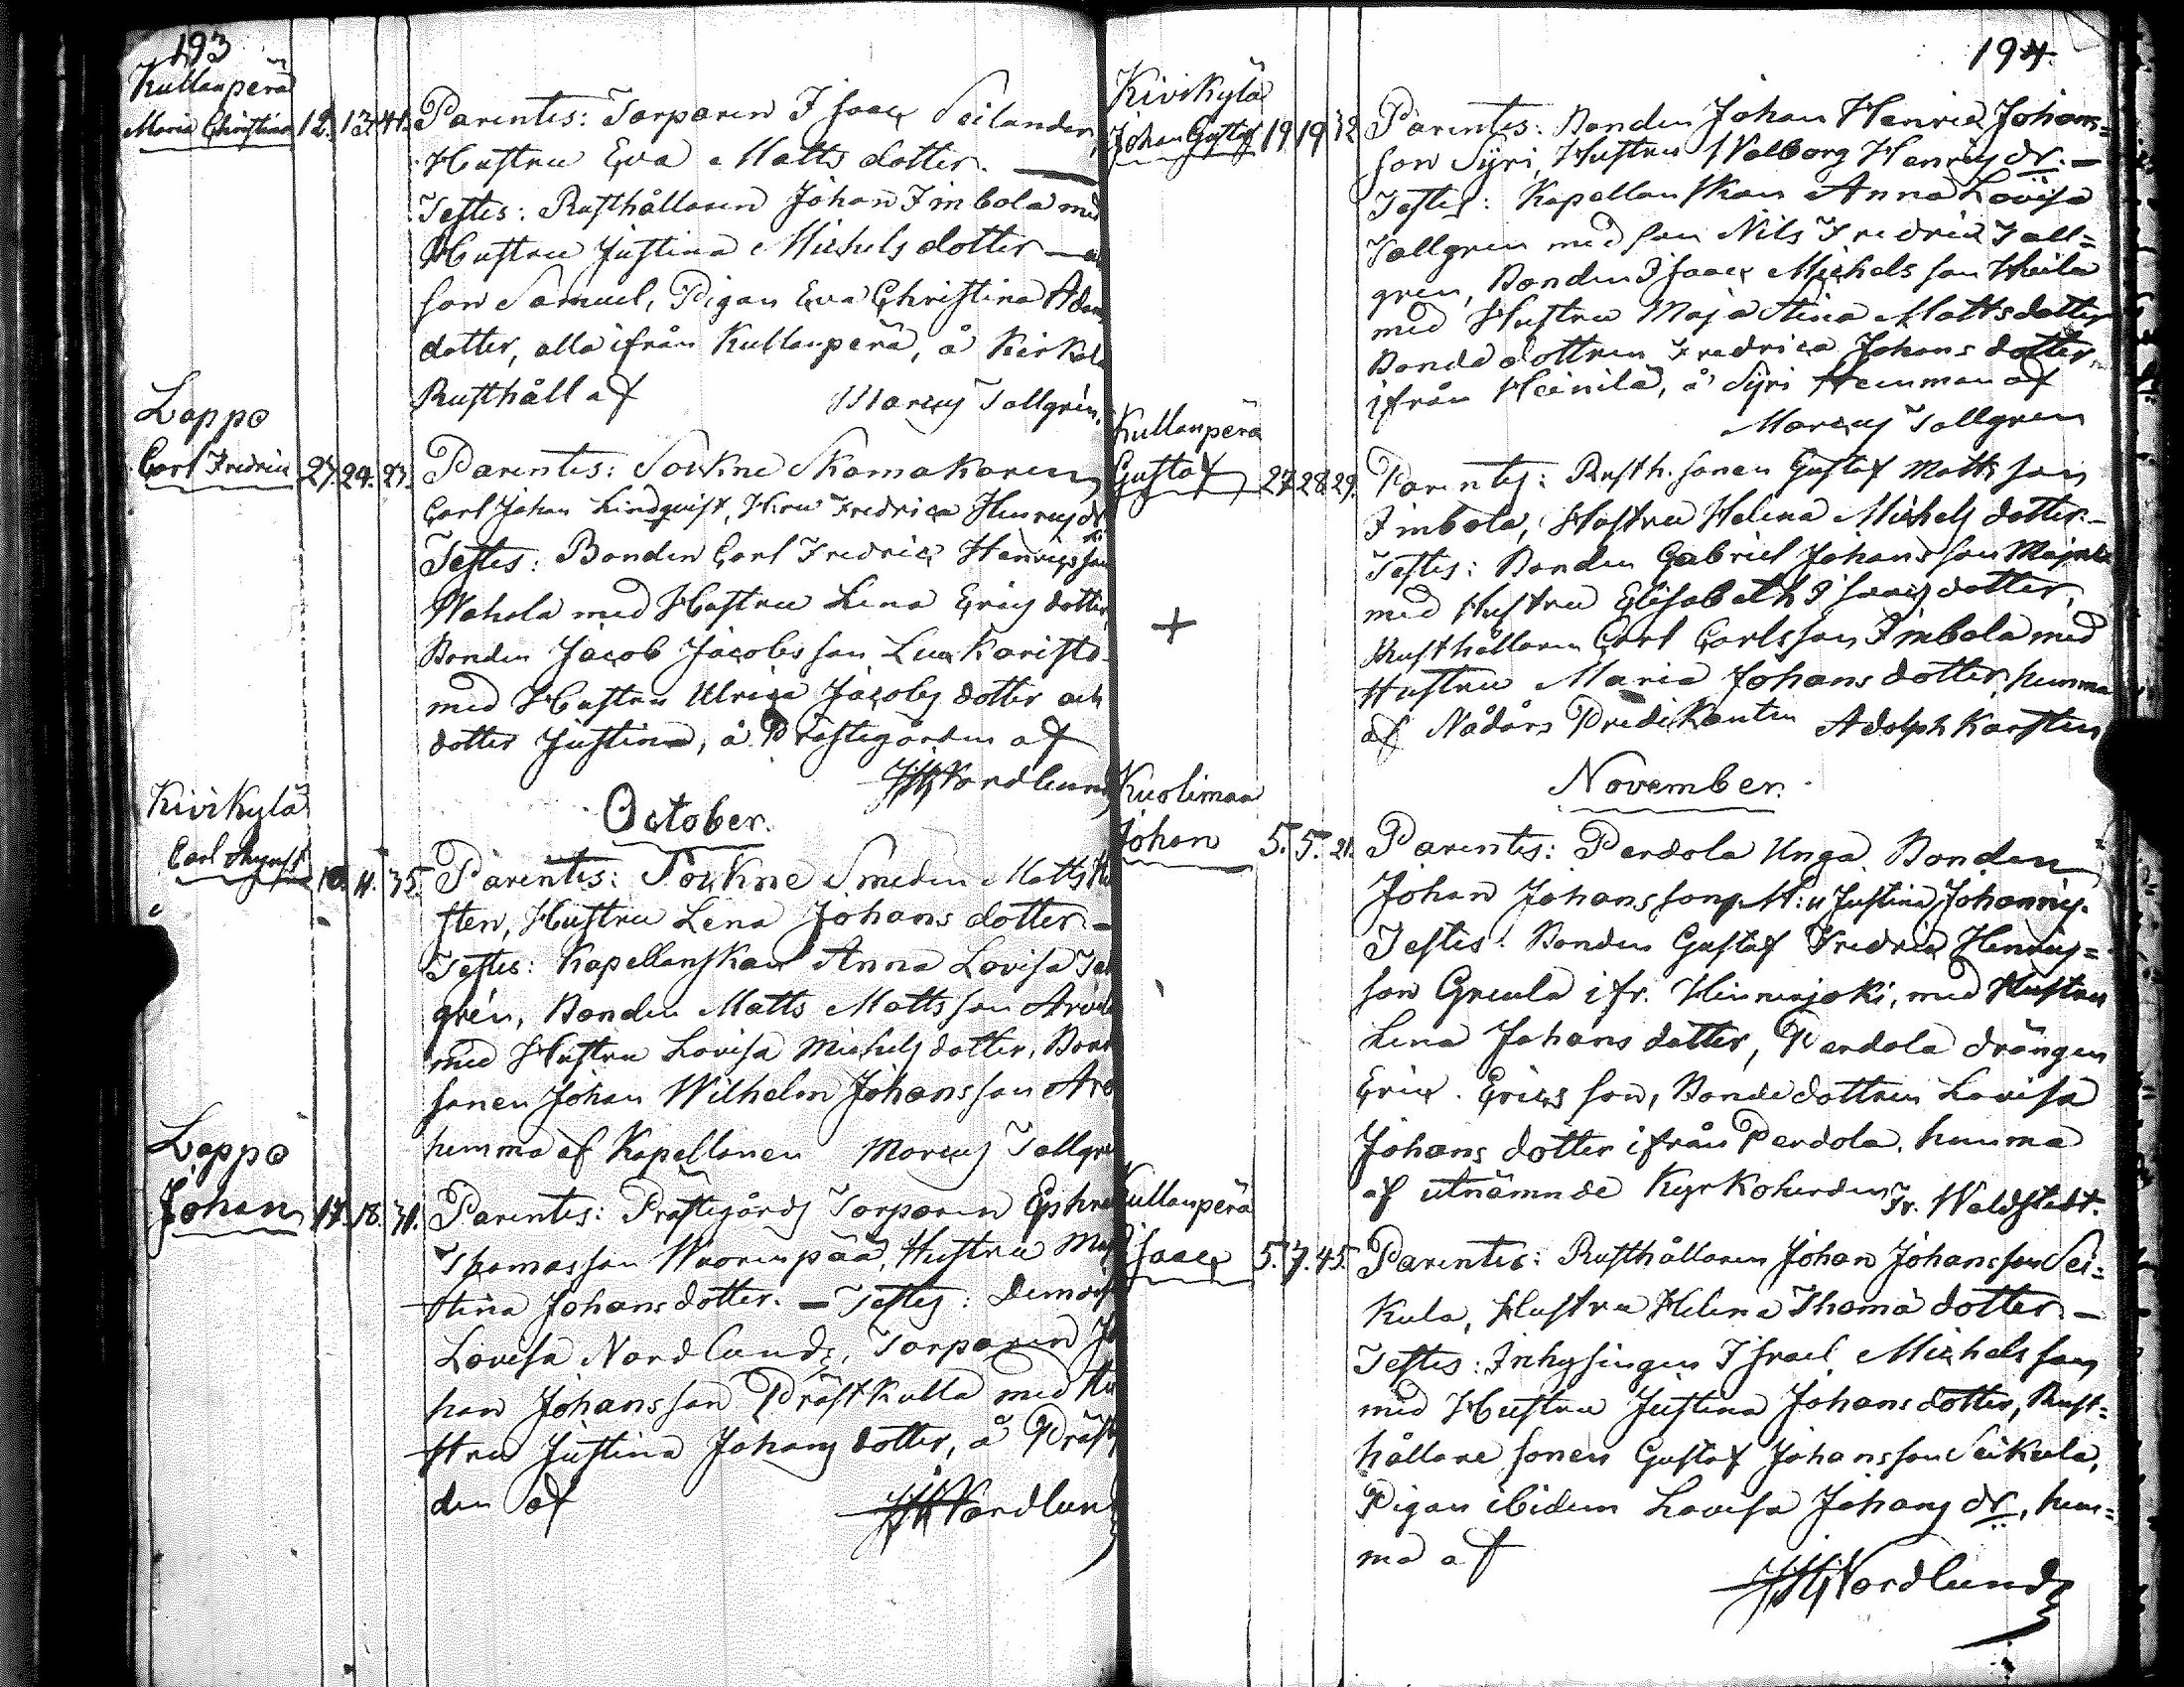 193
Kullanperä
Maria Christina 12. 13. 41. Parentes: Torparen Isaac Seilander,
Hustru Eva Matts dotter. —
Testes: Rusthållaren Johan Imbola med
Hustru Justina Michels dotter —
son Samuel, Pigan Eva Christina Adams
dotter, alla ifrån Kullanperä, å Kirkola
Rusthåll af Marcus Tallgren.
Lappo
Carl Fredric 27. 29. 23. Parentes: Sockne Skomakaren
Carl Johan Lindqvist, H:ru Fredrica Henrics dr
Testes: Bonden Carl Fredric Henricsson
Wahola med Hustru Lena Erics dotter,
Bonden Jacob Jacobsson Luukaristo
med Hustru Ulrica Jacobs dotter och
dotter Justina, å Prästegården af
Nordlund
October.
Kivikylä
Carl August 10. 11. 35. Parentes: Sockne Smeden Matts
sten, Hustru Lena Johans dotter —
Testes: Kapellanskan Anna Lovisa Tall
grén, Bonden Matts Mattsson
med Hustru Lovisa Michels dotter, Bonde
sonen Johan Wilhelm Johansson
hemma af Kapellanen Marcus Tallgren
Lappo
Johan 17. 18. 31. Parentes: Prästegårds Torparen Ephra
Thomasson Wuorenpää, Hustru Maja
Stina Johansdotter. — Testes: Demois
Lovisa Nordlund, Torparen Jo
han Johansson Prästkulla med Hu
stru Justina Johans dotter, å Präst
den af Nordlund
194.
Kivikylä
Johan Gustaf 19 19 32 Parentes: Bonden Johan Henric Johans=
son Syri, Hustru Walborg Henrics dr. —
Testes: Kapellanskan Anna Lovisa
Tallgren med son Nils Fredric Tall=
gren, Bonden Isaac Michelsson Heila
med Hustru Maja Stina Mattsdotter
Bonde dottren Fredrica Johans dotter
ifrån Heinilä, å Syri Hemman af
Marcus Tallgren
Kullanperä
Gustaf 27 28 29. Parentes: Rusth. sonen Gustaf Mattsson
Imbola, Hustru Helena Michels dotter. —
Testes: Bonden Gabriel Johansson
med Hustru Elisabeth Isaacs dotter,
Rusthållaren Carl Carlsson Imbola med
+
Hustru Maria Johans dotter, hemma
af Nådårs Predikanten Adolph Karsten
November.
Kuolimaa
Johan 5. 5. 21. Parentes: Perdola Unga Bonden
Johan Johansson, H:u Justina Johannis.
Testes: Bonden Gustaf Fredric Henrics=
son Greula ifr. Hinnerjoki, med Hustru
Lena Johans dotter, Perdola drängen
Eric Ericsson, Bonde dottren Lovisa
Johans dotter ifrån Perdola. hemma
af utnämnde Kyrkoherden Fr. Waldstedt.
Kullanperä
Isaac 5. 7. 45. Parentes: Rusthållaren Johan Johansson Sei=
kula, Hustru Helena Thomä dotter —
Testes: Inhysingen Israel Michelsson
med Hustru Justina Johans dotter, Rust=
hållare sonen Gustaf Johansson Seikula,
Pigan ibidem Lovisa Johans dr, hem=
ma af
Nordlund